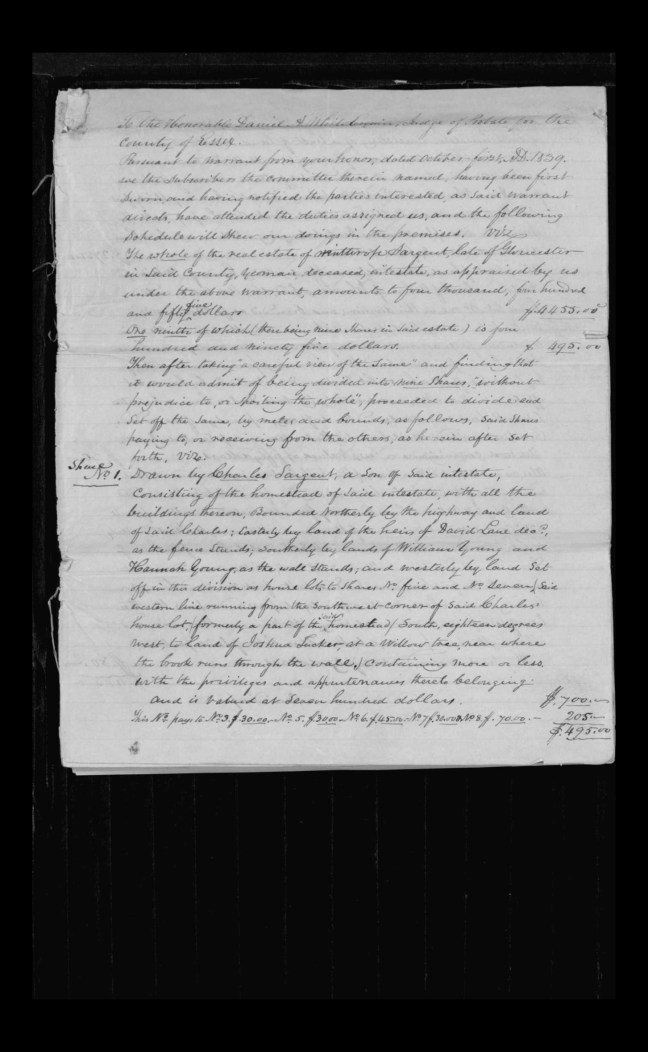 To the Honorable Daniel A. White Esquire, Judge of Probate for the
County of Essex.
Pursuant to warrant from your honor, dated October first, AD. 1839,
we the Subscribers the committee therein named, having been first
Sworn, and having notified the parties interested, as said warrant
directs, have attended the duties assigned us, and the following
Schedule will Shew our doings in the premises. Viz
The whole of the real estate of Winthrop Sargent, late of Gloucester
in Said County, Yeoman, deceased, intestate, as appraised by us
under the above warrant, amounts to four thousand, four hundred
and fifty five dollars $.4455.00
One ninth of which (there being nine Shares in said estate) is four
hundred and ninety five dollars. $. 495.00
Then after taking "a careful view of the Same" and finding that
it would admit of being divided into nine Shares, "without
prejudice to, or Spoiling the whole", proceeded to divide and
Set off the Same, by metes and bounds, as follows, Said Shares
paying to, or receiving from the others, as herein after Set
forth, Viz.
Share No. 1. Drawn by Charles Sargent, a Son of Said intestate,
Consisting of the homestead of Said intestate, with all the
buildings thereon, Bounded Northerly by the highway and land
of Said Charles; Easterly by land of the heirs of David Lane decd.,
as the fence Stands; Southerly by lands of William Young and
Hannah Young, as the wall Stands; and westerly by land Set
off in this division as house lots to Shares No. five and No. Seven, (Said
western line running from the Southwest corner of Said Charles'
house lot, (formerly a part of this homestead) South, eighteen degrees
west, to land of Joshua Tucker, at a Willow tree, near where
the brook runs through the wall,) Containing more or less
with the privileges and appurtenances thereto belonging.
And is valued at Seven hundred dollars. $.700.—
This No. pays to No. 3 $.30.00. No. 5. $.30.00. No. 6. $.45.00. No. 7 $.30.00 & No. 8 $. 70.00.— 205.—
$.495.00